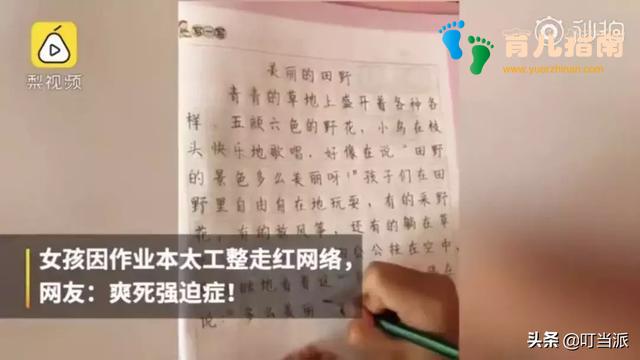 写一写
梨视频
秒拍
育儿指南
www.yuerzhinan.com
美丽的田野
青青的草地上盛开着各种各
样、五颜六色的野花，小鸟在枝
头快乐地歌唱，好像在说“田野
的景色多么美丽呀！”孩子们在田
野里自由自在地玩耍，有的采野
花，有的放风筝，还有的躺在草
公公挂在空中，
地看着这
说：“多么美丽
女孩因作业本太工整走红网络，
网友：爽死强迫症！
头条 @叮当派